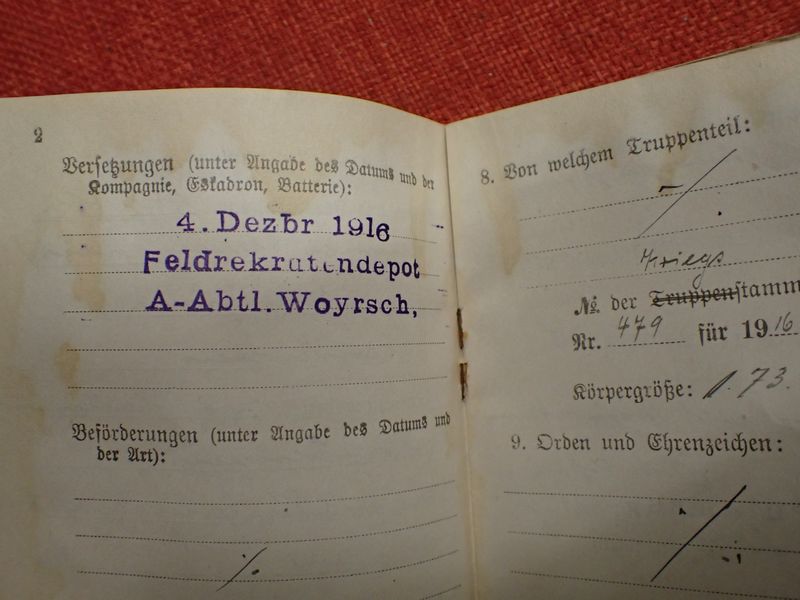 2
Versetzungen (unter Angabe des Datums und der
Kompagnie, Eskadron, Batterie):
4. Dezbr 1916
Feldrekrutendepot
A-Abtl. Woyrsch,
Beförderungen (unter Angabe des Datums und
der Art):
8. Von welchem Truppenteil:
Kriegs
№ der Truppenstamm
Nr. 479 für 1916
Körpergröße: 1.73.
9. Orden und Ehrenzeichen: